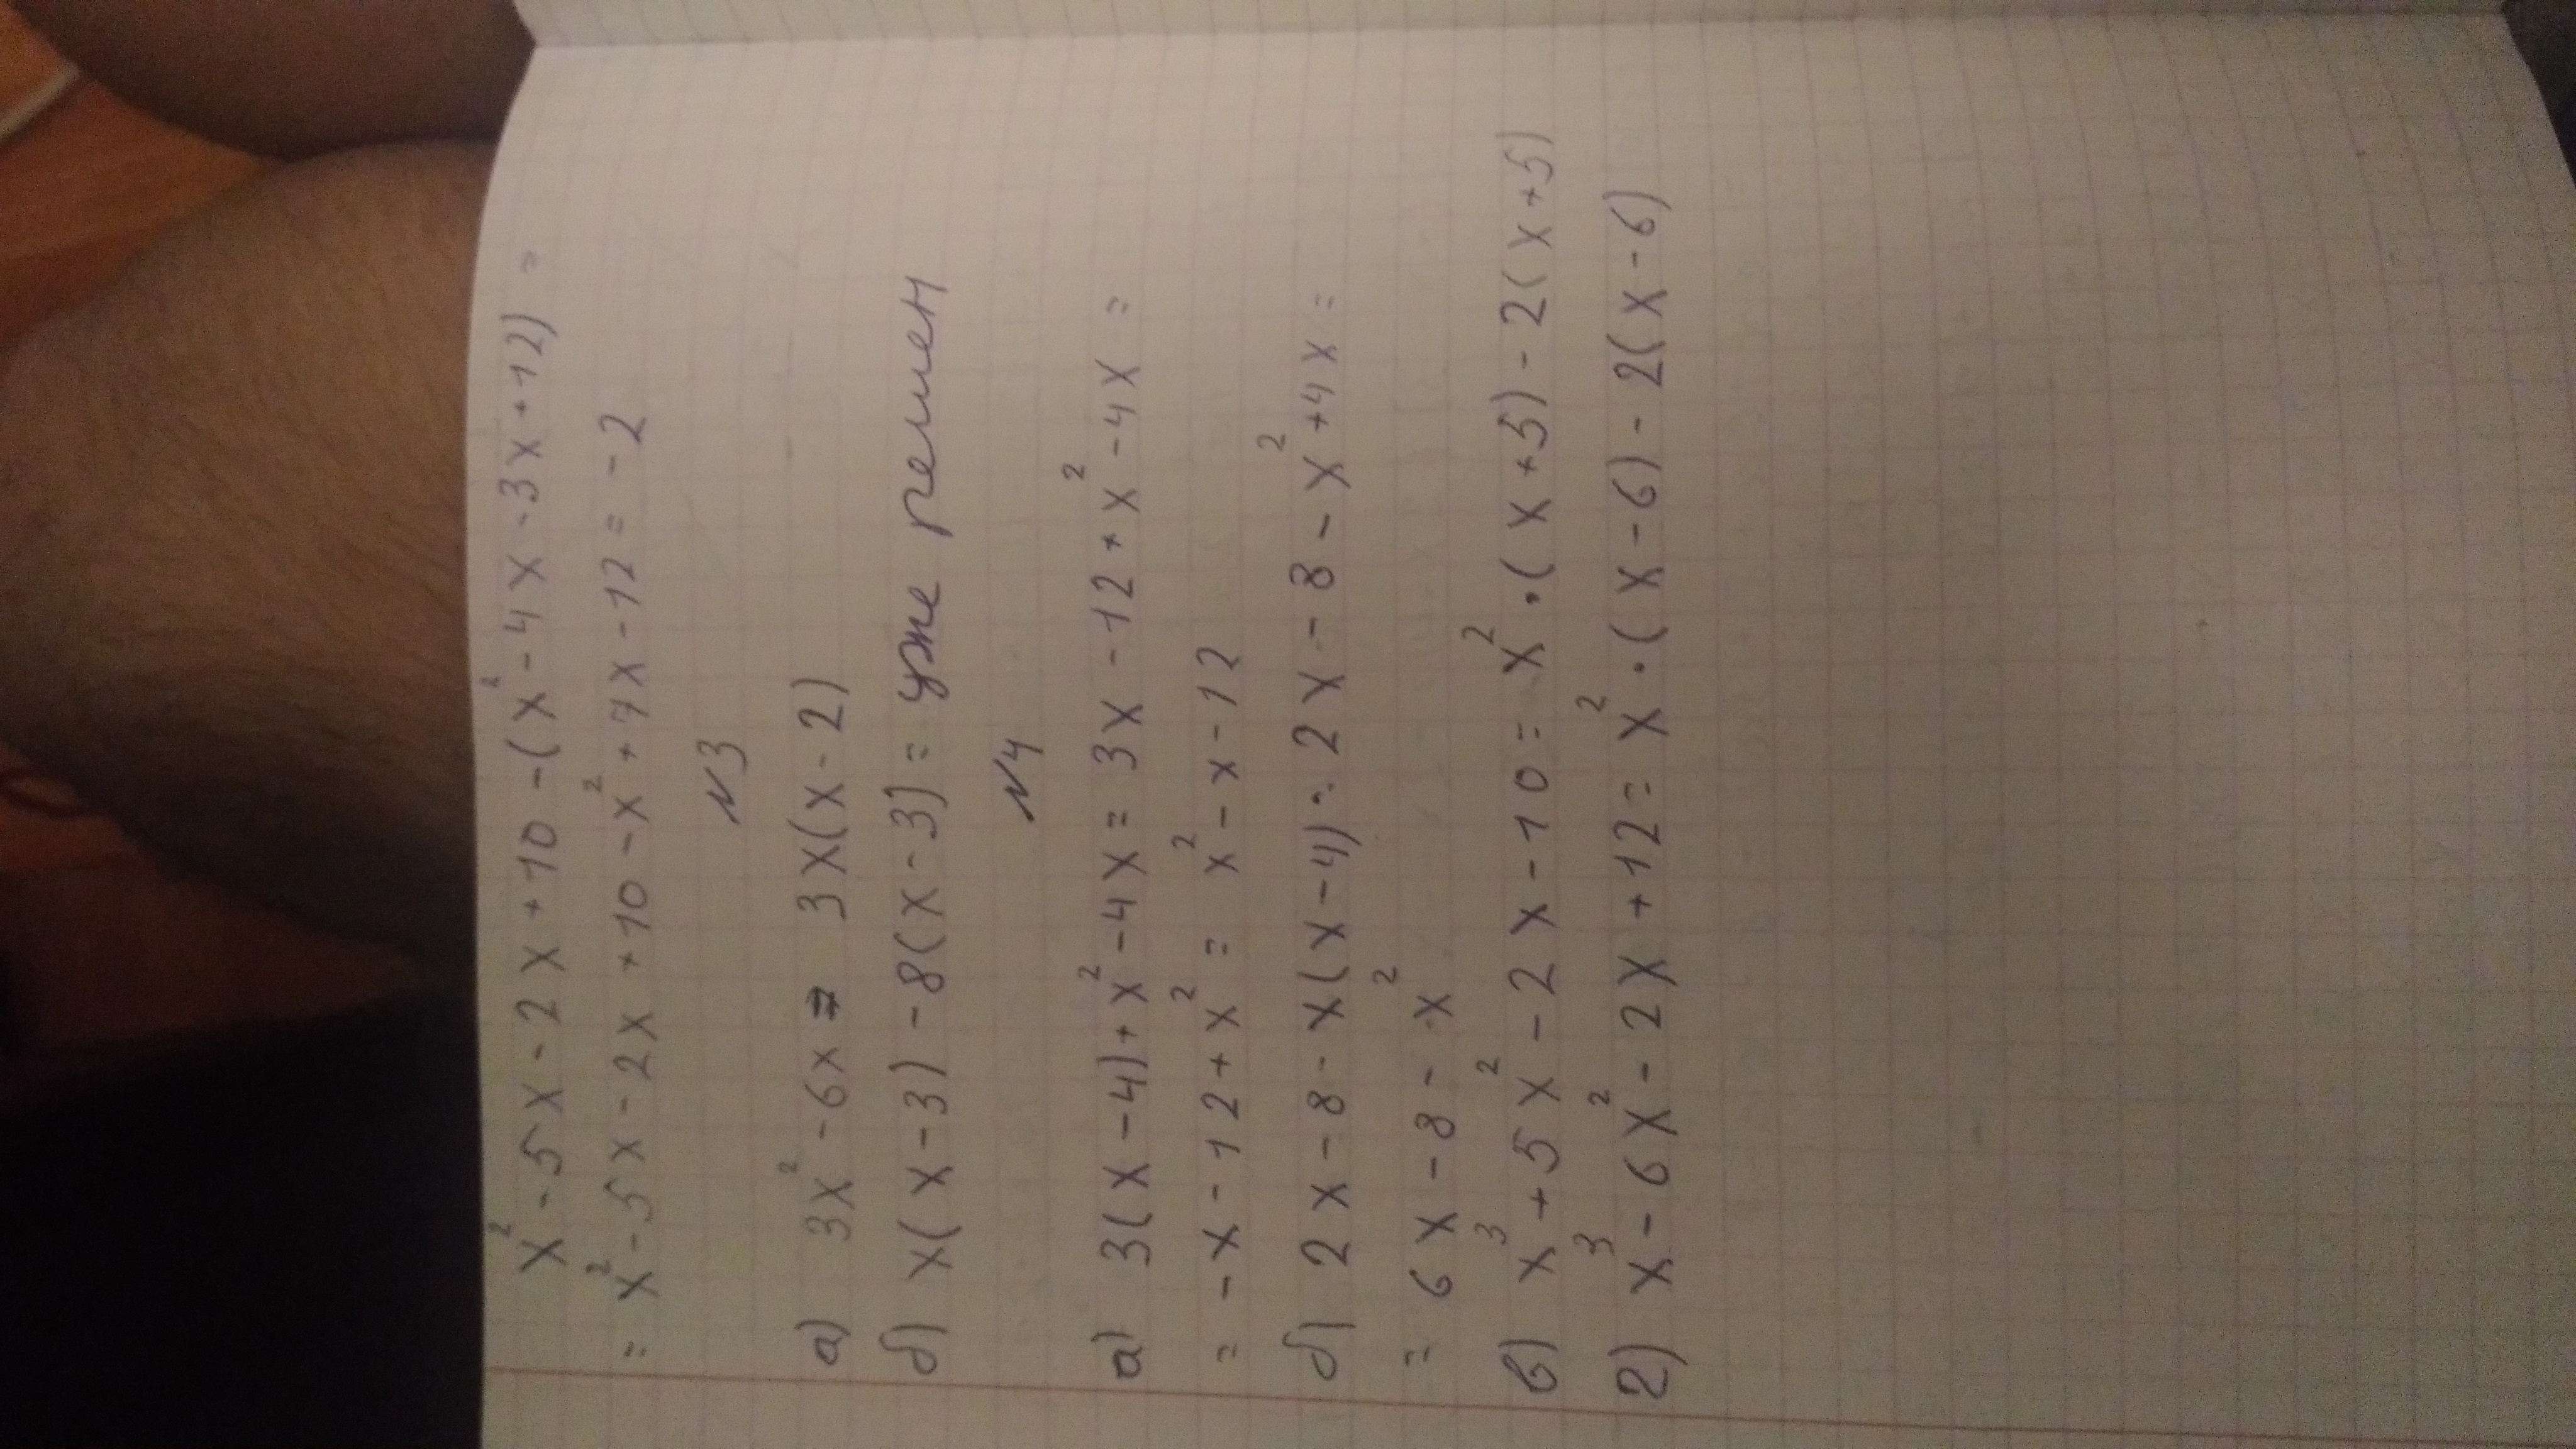 x² - 5x - 2x + 10 - (x² - 4x - 3x + 12) =
= x² - 5x - 2x + 10 - x² + 7x - 12 = - 2
№3
а) 3x² - 6x = 3x(x - 2)
б) x(x - 3) - 8(x - 3) = уже решен
№4
а) 3(x - 4) + x² - 4x = 3x - 12 + x² - 4x =
= - x - 12 + x² = x² - x - 12
б) 2x - 8 - x(x - 4) = 2x - 8 - x² + 4x =
= 6x - 8 - x²
в) x³ + 5x² - 2x - 10 = x² · (x + 5) - 2(x + 5)
г) x³ - 6x² - 2x + 12 = x² · (x - 6) - 2(x - 6)